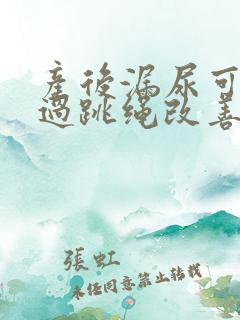 產後漏尿可
過跳繩改善
張虹
未經同意禁止轉載